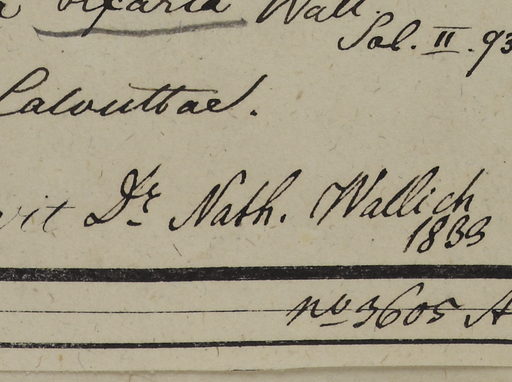 bifaria Wall.
Sol. II. 93
Calcuttae.
vit Dr. Nath. Wallich
1833
no 3605 A